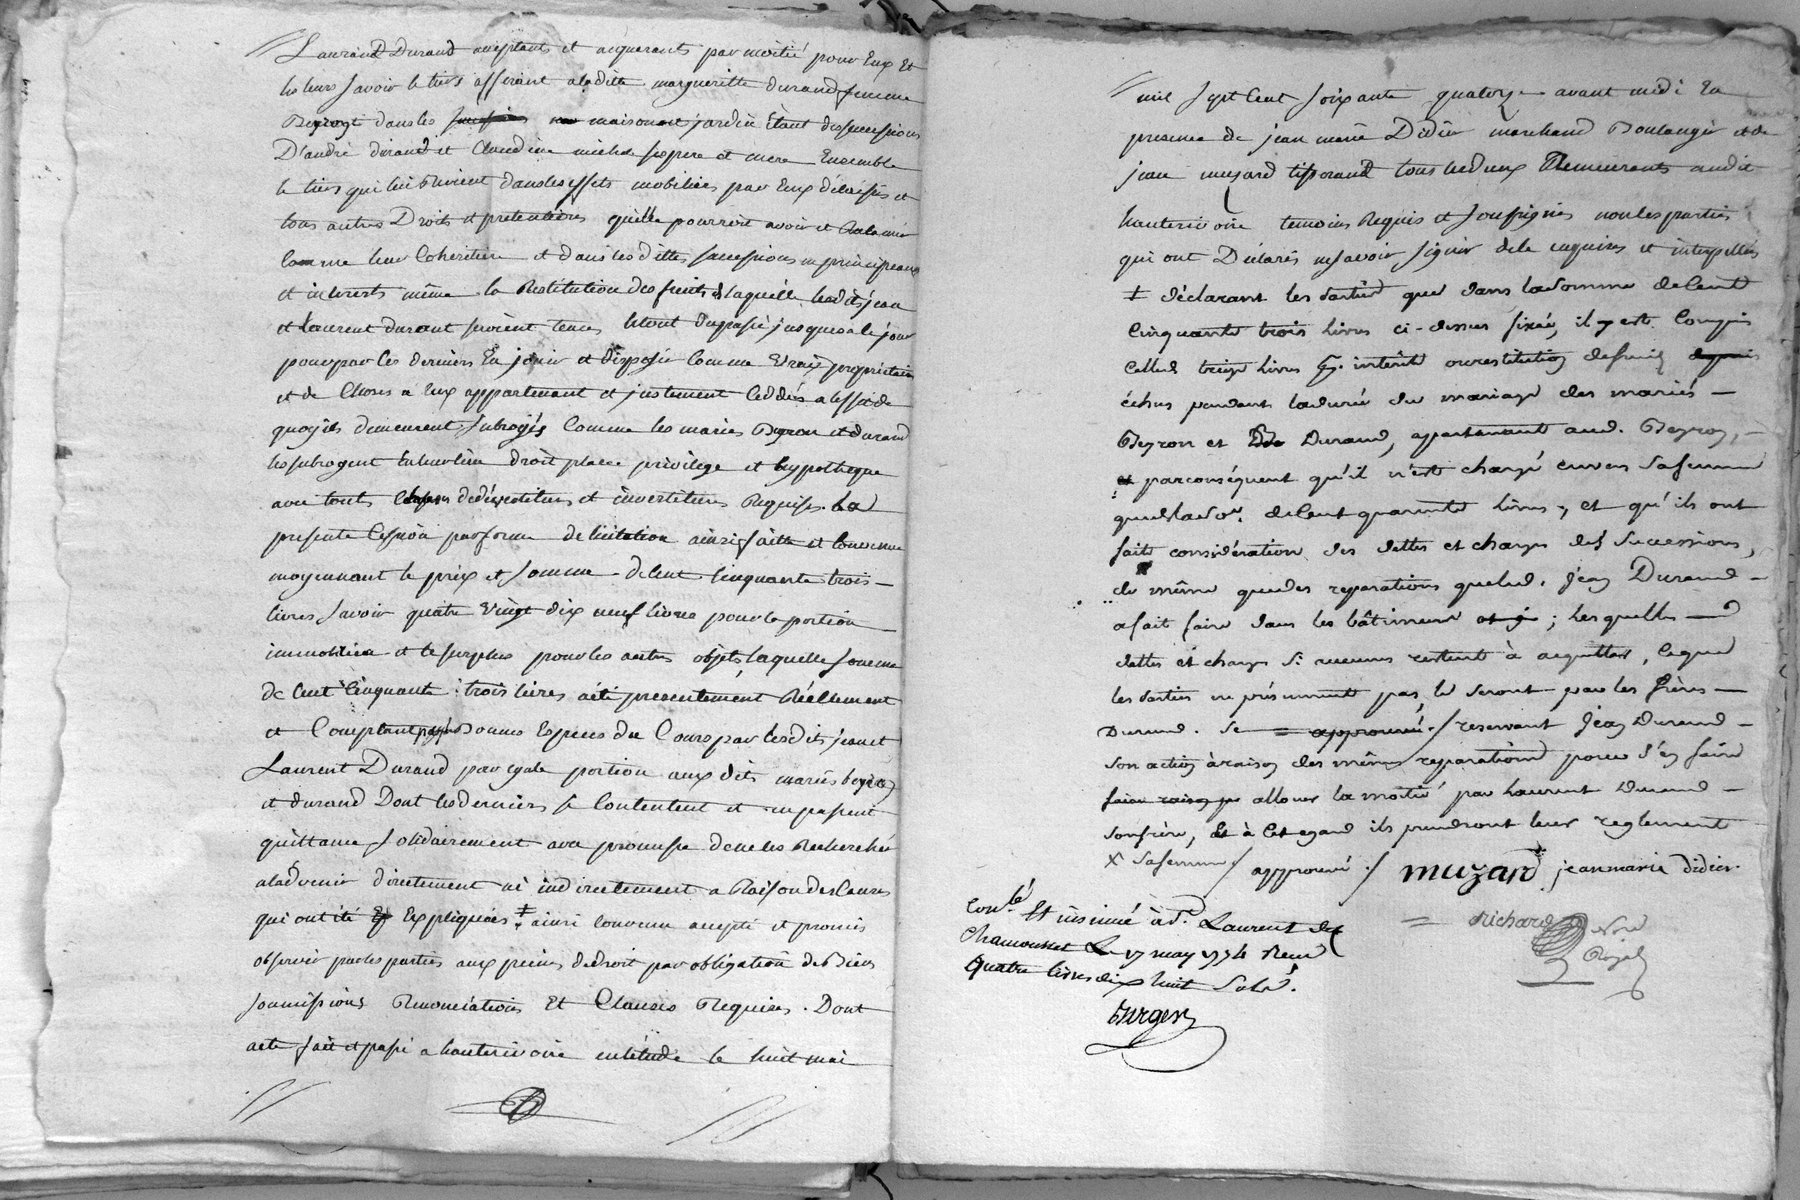 Laurand Durand acceptants et acquerants par moitié pour Eux Et
les leurs savoir le tiers afferant aladitte margueritte durand femme
Beyrong dans les maison et jardin Etant des successions
D'andré durand et Claudine michel ses pere et mere Ensemble
le tiers qui lui revient dans les effets mobiliers par Eux délaissés et
tous autres Droits et pretentions qu'elle pourroit avoir et
comme leur Cohéritiere et dans lesdittes successions en principeaux
et interests même la Restitution des fruits à laquelle lesdits jean
et Laurent durant seroient tenus le tout du passé jusques a ce jour
pour par les derniers En jouir et disposer comme vrais propriétaires
et de Choses a Eux appartenant et justement ceddés a l'effet de
quoy ils demeurent subrogés Comme les mariés Beyron et durand
les subrogent En leur lieu droit place privilege et hypotheque
avec touts dedévestiture et investiture Requises. La
presente Cession par forme de licitation ainsi faitte et Convenue
moyennant le prix et somme de Cent Cinquante trois
livres savoir quatre vingt dix neuf livres pour la portion
immobiliere et le surplus pour les autres objets laquelle somme
de Cent Cinquante trois livres a été presentement Réellement
et Comptant payée Bonnes Especes du Cours par lesdits jean et
Laurent Durand par egale portion aux dits mariés beyron
et durand Dont les derniers se Contentent et en passent
quittance solidairement avec promesse de ne les Rechercher
aladvenir directement ni indirectement a Raison des Causes
qui ont été Expliquées ‡ ainsi convenu accepté et promis
observer par les parties aux peines de droit par obligation de Biens
soumissions Renonciations Et Clauses Requises. Dont
acte fait et passé a hauterivoire en l'étude le huit mai
mil sept Cent soixante quatorze avant midi En
presence de jean marie Didier marchand Boulanger et de
jean muzard tisserand tous les deux Demeurants audit
hauterivoire temoins Requis et soussignés non les parties
qui ont Déclarés ne savoir signer de ce enquises et interpellés
‡ déclarant les parties que dans la somme de Cent
Cinquante trois livres ci-dessus fixée, il y est Compris
Celle de treize livres pr. intérêts ou restitution de fruits depuis
échus pendant la durée du mariage des mariés —
Beyron et Durand, appartenant aud. Beyron, —
et par conséquent qu'il n'est chargé envers sa femme
que de la so.e de Cent quarante livres, et qu'ils ont
fait considération des dettes et charges des successions,
de même que des réparations que led. Jean Durand —
a fait faire dans les bâtiments ; lesquelles —
dettes et charges si aucunes restent à acquitter, ce que
les parties ne présument pas, le seront par les frères —
Durand. Se = approuvé ./ reservant Jean Durand —
son action à raison des mêmes réparations pour s'en faire
faire raison allouer la moitié par Laurent Durand —
son frère, Et à cet egard ils prendront leur reglement
X Sa femme / approuvé ./ muzard jeanmarie didier
= Richard Nore Royal
Con.lé Et insinué à St. Laurent de
Chamousset Le 17 may 1774 Reçu
Quatre livres dix huit sols.
Burgess